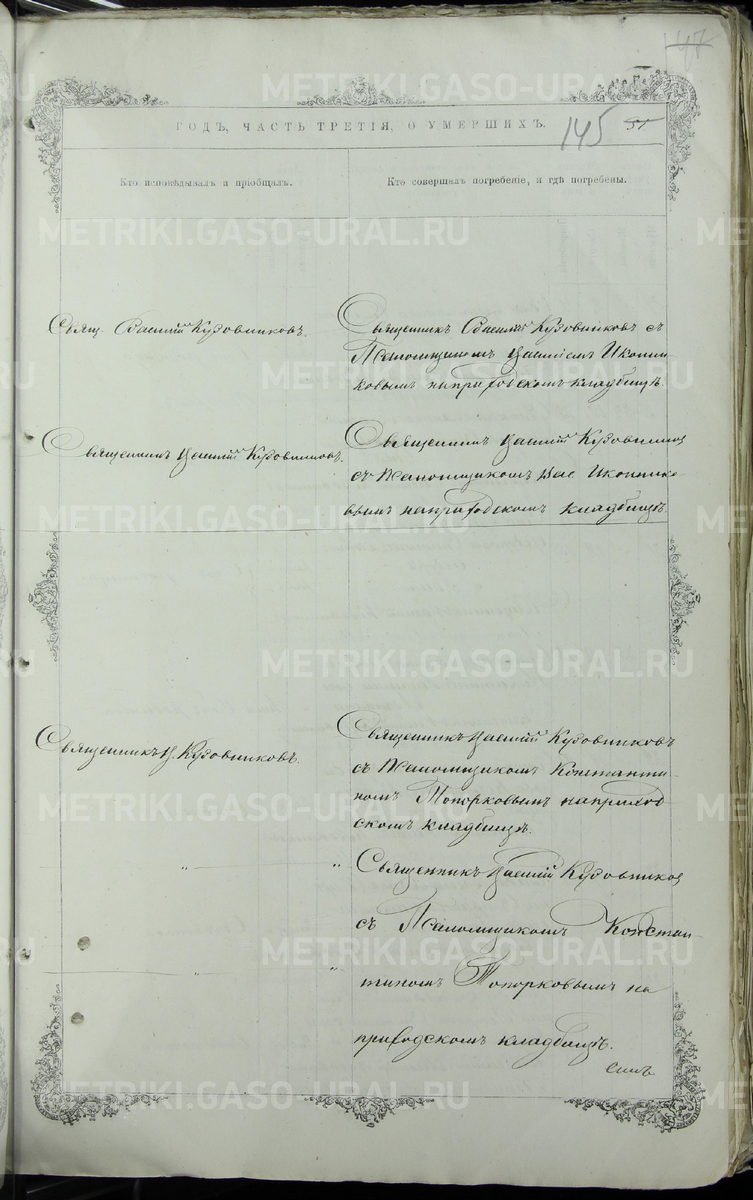 147
ГОДЪ, ЧАСТЬ ТРЕТІЯ, О УМЕРШИХЪ.
145
51
Кто исповѣдывалъ и пріобщалъ.
Кто совершалъ погребеніе, и гдѣ погребены.
METRIKI.GASO-URAL.RU
Свящ. Василій Кудовниковъ.
Священникъ Василій Кудовниковъ съ
Псаломщикомъ Василіемъ Иконни-
ковымъ на приходскомъ кладбищѣ.
Священникъ Василій Кудовниковъ.
Священникъ Василій Кудовников
съ Псаломщикомъ Вас Иконнико-
вымъ на приходскомъ кладбищѣ.
Священникъ В. Кудовниковъ.
Священникъ Василій Кудовниковъ
съ Псаломщикомъ Константи-
номъ Топорковымъ на приход
скомъ кладбищѣ.
" "
Священникъ Василій Кудовников
съ Псаломщикомъ Констан-
" "
тиномъ Топорковымъ на
приходскомъ кладбищѣ.